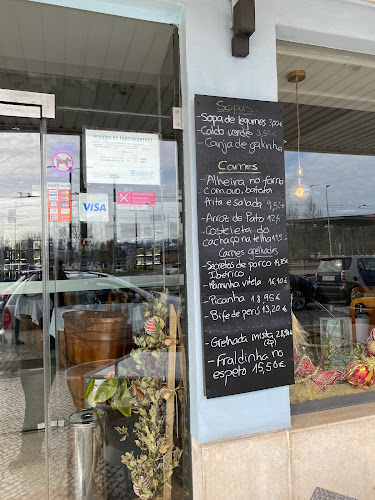 Sopas
- Sopa de legumes 3,50€
- Caldo verde 3,50€
- Canja de galinha
Carnes
- Alheira no forno
com ovo, batata
frita e salada 9,50€
- Arroz de Pato 12€
- Costeleta do
cachaço na telha
Carnes grelhadas
- Secretos de porco
Ibérico
- Maminha vitela 16,10€
- Picanha 18,95€
- Bife de perú 13,20€
- Grelhada mista
- Fraldinha no
espeto 15,50€
PERÍODO DE FUNCIONAMENTO
VISA